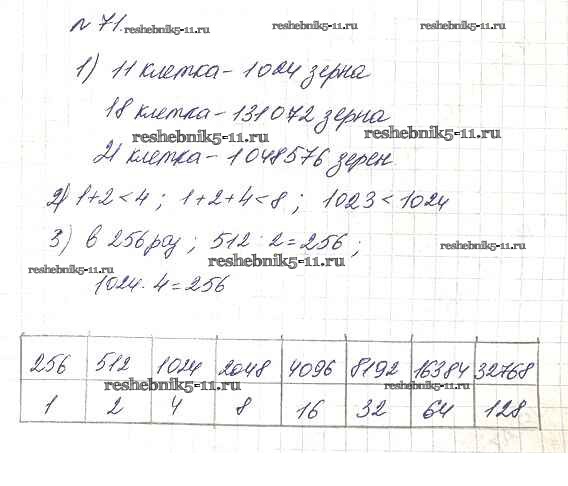 № 71.
reshebnik5-11.ru
reshebnik5-11.ru
reshebnik5-11.ru
1) 11 клетка - 1024 зерна
18 клетка - 131072 зерна
reshebnik5-11.ru
reshebnik5-11.ru
21 клетка - 1048576 зерен
2) 1+2<4 ; 1+2+4<8 ; 1023<1024
3) в 256 раз ; 512 : 2 = 256 ;
reshebnik5-11.ru
reshebnik5-11.ru
reshebnik5-11.ru
1024 : 4 = 256
256 512 1024 2048 4096 8192 16384 32768
reshebnik5-11.ru
reshebnik5-11.ru
1 2 4 8 16 32 64 128